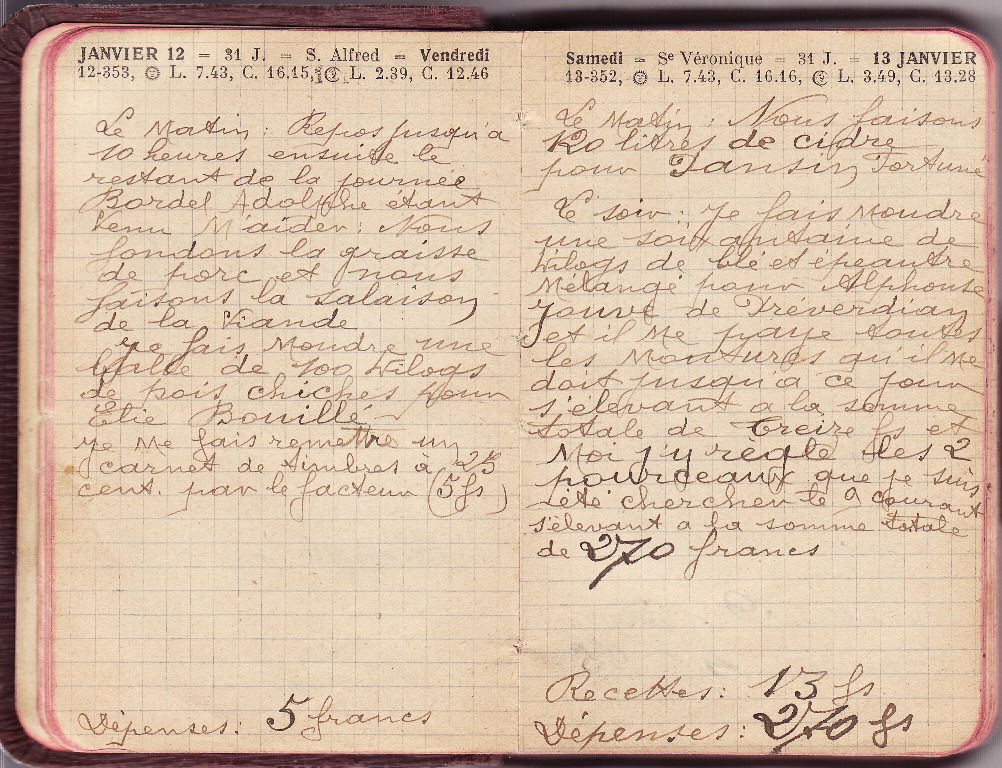 JANVIER 12 = 31 J. = S. Alfred = Vendredi
12-353, L. 7.43, C. 16.15, L. 2.39, C. 12.46
Le Matin : Repos jusqu'a
10 heures ensuite le
restant de la journée
Bordel Adolphe étant
Venu M'aider : Nous
fondons la graisse
de porc et nous
faisons la salaison
de la Viande
Je fais Moudre une
balle de 100 Kilogs
de pois chiches pour
Elie Bouillé
Je Me fais remettre un
carnet de timbres à 25
cent. par le facteur (5 fs)
Dépenses : 5 francs
Samedi = Se Véronique = 31 J. = 13 JANVIER
13-352, L. 7.43, C. 16.16, L. 3.49, C. 13.28
Le Matin : Nous faisons
120 litres de cidre
pour Jansin Fortuné
Le soir : Je fais Moudre
une soixantaine de
Kilogs de blé et épeautre
Mélangé pour Alphonse
Jouve de Tréverdian
et il Me paye toutes
les Moutures qu'il Me
doit jusqu'à ce jour
s'élevant a la somme
totale de Treize fs et
Moi j'y règle les 2
pourceaux que je suis
été chercher le 9 courant
s'élevant a la somme totale
de 270 francs
Recettes : 13 fs
Dépenses : 270 fs